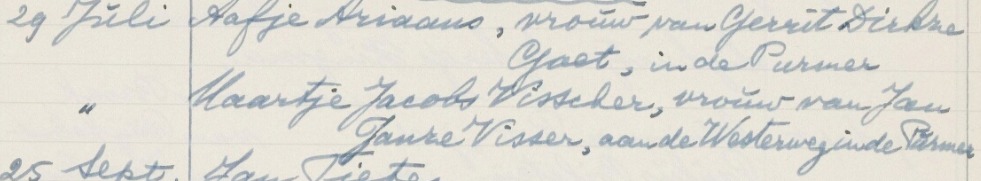 29 Juli Aafje Ariaans, vrouw van Gerrit Dirkze
Goet, in de Purmer
" Maartje Jacobs Visscher, vrouw van Jan
Janze Visser, aan de Westerweg in de Purmer
25 Sept. Jan Pieter